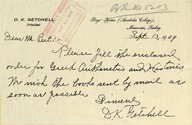 D. K. GETCHELL
Principal
Boys' Home (Anatolia College)
Marsovan, Turkey
Sept. 13, 09
Dear Mr. Peet:
Please fill the enclosed
order for Greek Arithmetics and Histories
We wish the books sent by mail as
soon as possible.
Sincerely
D. K. Getchell